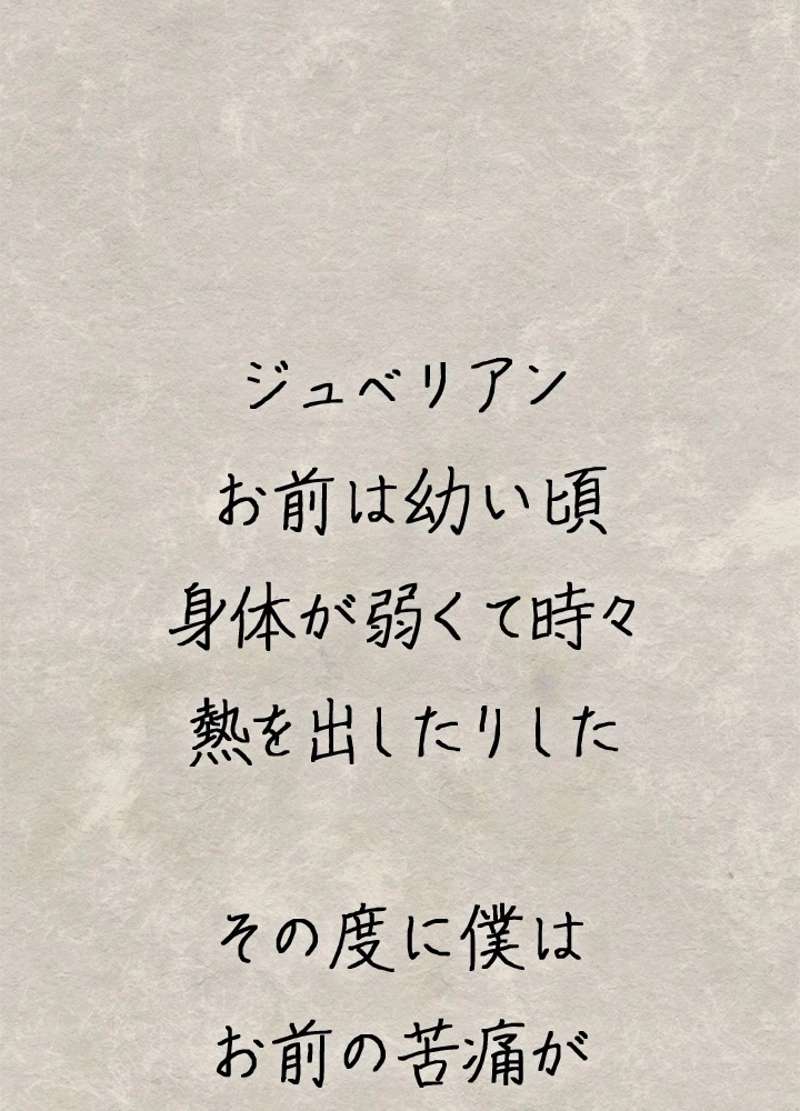 ジュベリアン
お前は幼い頃
身体が弱くて時々
熱を出したりした
その度に僕は
お前の苦痛が